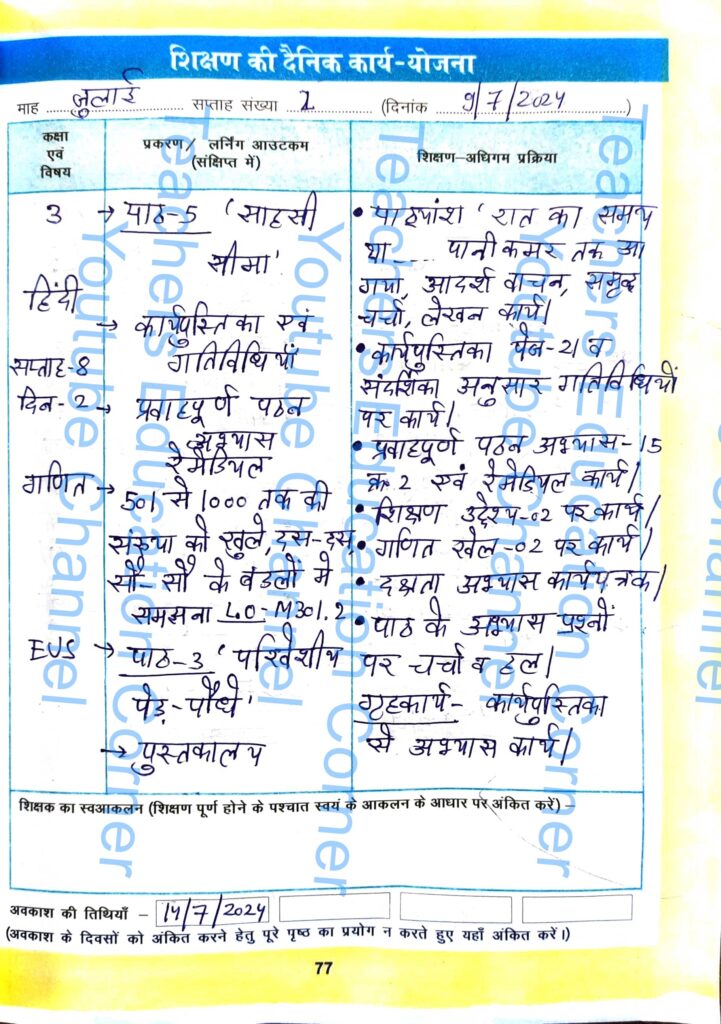 शिक्षण की दैनिक कार्य-योजना
माह जुलाई सप्ताह संख्या 2 (दिनांक 9/7/2024)
कक्षा
एवं
विषय
प्रकरण/ लर्निंग आउटकम
(संक्षिप्त में)
शिक्षण-अधिगम प्रक्रिया
3
हिंदी
सप्ताह-8
दिन-2
→ पाठ-5 'साहसी
सीमा'
→ कार्यपुस्तिका एवं
गतिविधियाँ
→ प्रवाहपूर्ण पठन
अभ्यास
रेमेडियल
गणित
→ 501 से 1000 तक की
संख्या को खुले, दस-दस,
सौ-सौ के बंडलों में
समझना LO-M301.2
EVS
→ पाठ-3 'परिवेशीय
पेड़-पौधे'
→ पुस्तकालय
• पाठ्यांश 'रात का समय
था.... पानी कमर तक आ
गया, आदर्श वाचन, समृद्ध
चर्चा, लेखन कार्य।
• कार्यपुस्तिका पेज-21 व
संदर्शिका अनुसार गतिविधियों
पर कार्य।
• प्रवाहपूर्ण पठन अभ्यास-15
क्र 2 एवं रेमेडियल कार्य।
• शिक्षण उद्देश्य-02 पर कार्य।
• गणित खेल-02 पर कार्य।
• दक्षता अभ्यास कार्यपत्रक।
• पाठ के अभ्यास प्रश्नों
पर चर्चा व हल।
गृहकार्य- कार्यपुस्तिका
से अभ्यास कार्य।
शिक्षक का स्वआकलन (शिक्षण पूर्ण होने के पश्चात स्वयं के आकलन के आधार पर अंकित करें) –
अवकाश की तिथियाँ – 14/7/2024
(अवकाश के दिवसों को अंकित करने हेतु पूरे पृष्ठ का प्रयोग न करते हुए यहाँ अंकित करें।)
77
Teachers Education Corner
Youtube Channel
Teachers Education Corner
Youtube Channel